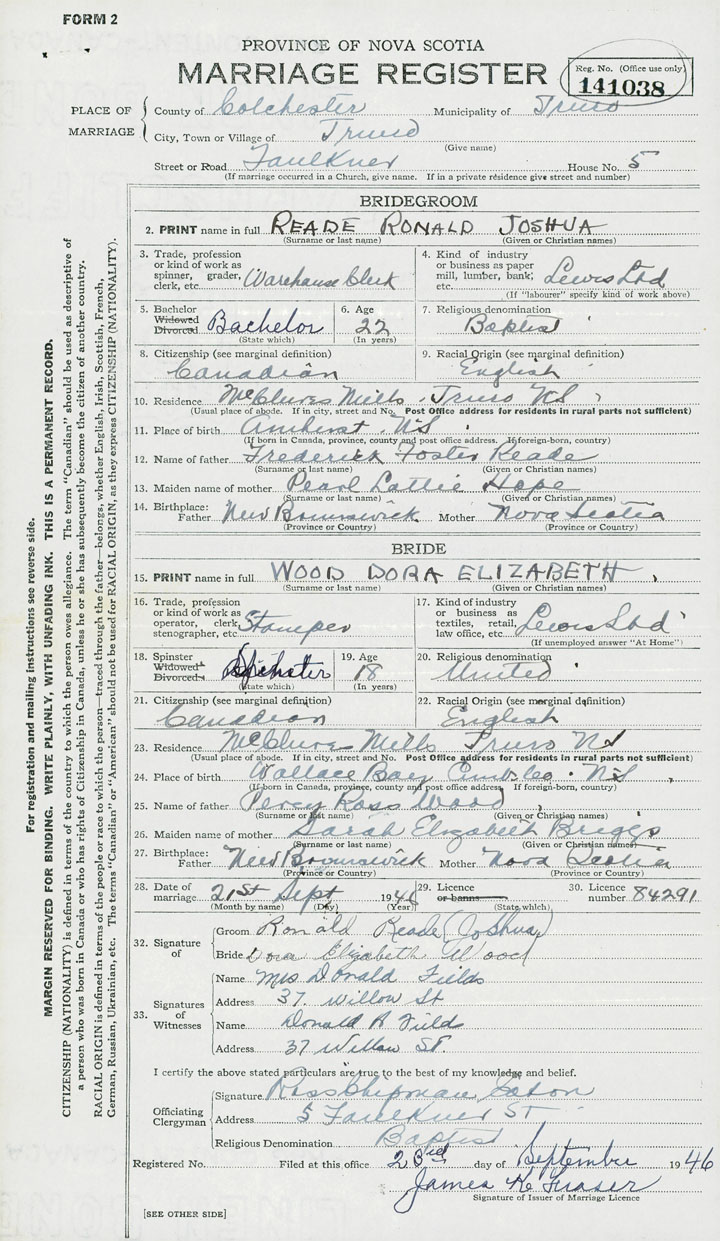 FORM 2
PROVINCE OF NOVA SCOTIA
MARRIAGE REGISTER
Reg. No. (Office use only)
141038
PLACE OF MARRIAGE
County of Colchester Municipality of Truro
City, Town or Village of Truro
(Give name)
Street or Road Faulkner House No. 5
(If marriage occurred in a Church, give name. If in a private residence give street and number)
BRIDEGROOM
2. PRINT name in full READE RONALD JOSHUA
(Surname or last name) (Given or Christian names)
3. Trade, profession or kind of work as spinner, grader, clerk, etc. Warehouse Clerk
4. Kind of industry or business as paper mill, lumber, bank, etc. Lewis Ltd
(If "labourer" specify kind of work above)
5. Bachelor Widowed Divorced Bachelor
(State which)
6. Age 22
(In years)
7. Religious denomination
Baptist
8. Citizenship (see marginal definition)
Canadian
9. Racial Origin (see marginal definition)
English
10. Residence McClures Mills Truro NS
(Usual place of abode. If in city, street and No. Post Office address for residents in rural parts not sufficient)
11. Place of birth Amherst NS
(If born in Canada, province, county and post office address. If foreign-born, country)
12. Name of father Frederick Foster Reade
(Surname or last name) (Given or Christian names)
13. Maiden name of mother Pearl Lattie Hope
(Surname or last name) (Given or Christian names)
14. Birthplace: Father New Brunswick Mother Nova Scotia
(Province or Country) (Province or Country)
BRIDE
15. PRINT name in full WOOD DORA ELIZABETH
(Surname or last name) (Given or Christian names)
16. Trade, profession or kind of work as operator, clerk, stenographer, etc. Stamper
17. Kind of industry or business as textiles, retail, law office, etc. Lewis Ltd
(If unemployed answer "At Home")
18. Spinster Widowed Divorced Spinster
(State which)
19. Age 18
(In years)
20. Religious denomination
United
21. Citizenship (see marginal definition)
Canadian
22. Racial Origin (see marginal definition)
English
23. Residence McClures Mills Truro NS
(Usual place of abode. If in city, street and No. Post Office address for residents in rural parts not sufficient)
24. Place of birth Wallace Bay NS
(If born in Canada, province, county and post office address If foreign-born, country)
25. Name of father Percy Ross Wood
(Surname or last name) (Given or Christian names)
26. Maiden name of mother Sarah Elizabeth Briggs
(Surname or last name) (Given or Christian names)
27. Birthplace: Father New Brunswick Mother Nova Scotia
(Province or Country) (Province or Country)
28. Date of marriage 21st Sept 1946
(Month by name) (Day) (Year)
29. Licence or banns
(State which)
30. Licence number 84291
32. Signature of
Groom Ronald Reade (Joshua)
Bride Dora Elizabeth Wood
33. Signatures of Witnesses
Name Mrs Donald Fields
Address 37 Willow St
Name Donald R Fields
Address 37 Willow St.
I certify the above stated particulars are true to the best of my knowledge and belief.
Officiating Clergyman
Signature Ross Chipman Eaton
Address 5 Faulkner ST
Religious Denomination Baptist
Registered No. Filed at this office 23rd day of September 1946
James K Fraser
Signature of Issuer of Marriage Licence
[SEE OTHER SIDE]
For registration and mailing instructions see reverse side.
MARGIN RESERVED FOR BINDING. WRITE PLAINLY, WITH UNFADING INK. THIS IS A PERMANENT RECORD.
CITIZENSHIP (NATIONALITY) is defined in terms of the country to which the person owes allegiance. The term "Canadian" should be used as descriptive of
a person who was born in Canada or who has rights of Citizenship in Canada, unless he or she has subsequently become the citizen of another country.
RACIAL ORIGIN is defined in terms of the people or race to which the person—traced through the father—belongs, whether English, Irish, Scottish, French,
German, Russian, Ukrainian, etc. The terms "Canadian" or "American" should not be used for RACIAL ORIGIN, as they express CITIZENSHIP (NATIONALITY).